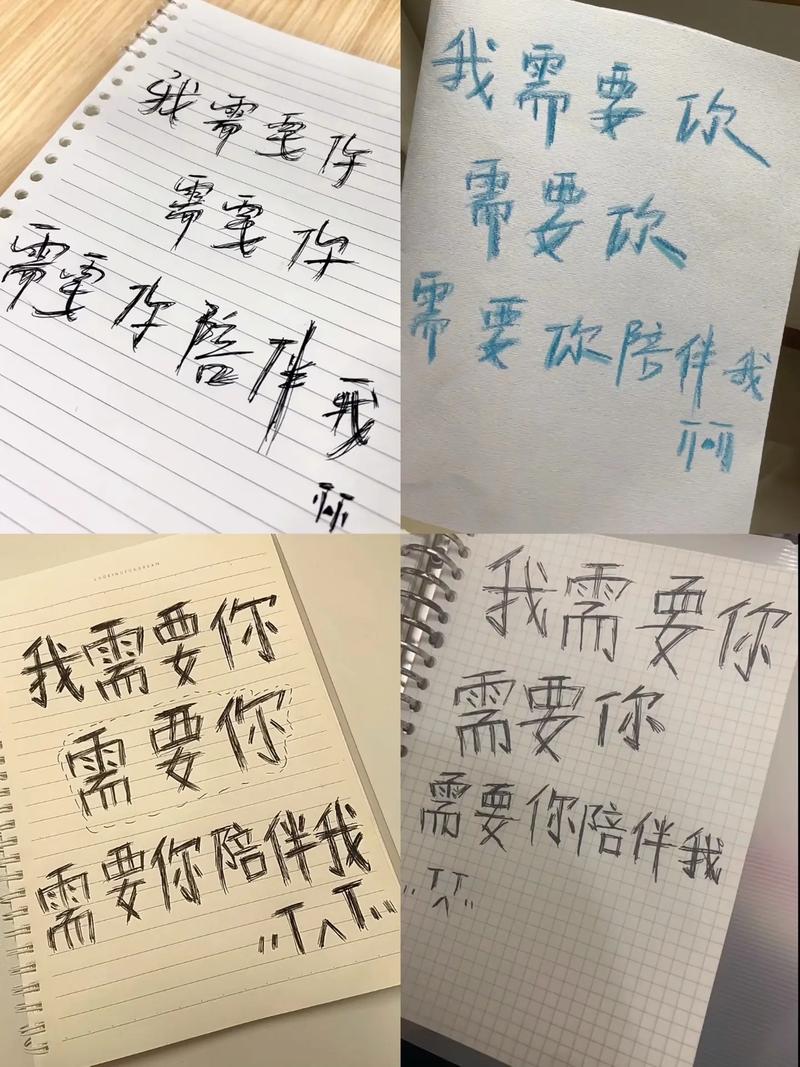 我需要你
需要你
需要你陪伴我
我需要你
需要你
需要你陪伴我
我需要你
需要你
需要你陪伴我
"T^T"
我需要你
需要你
需要你陪伴我
"T^T"